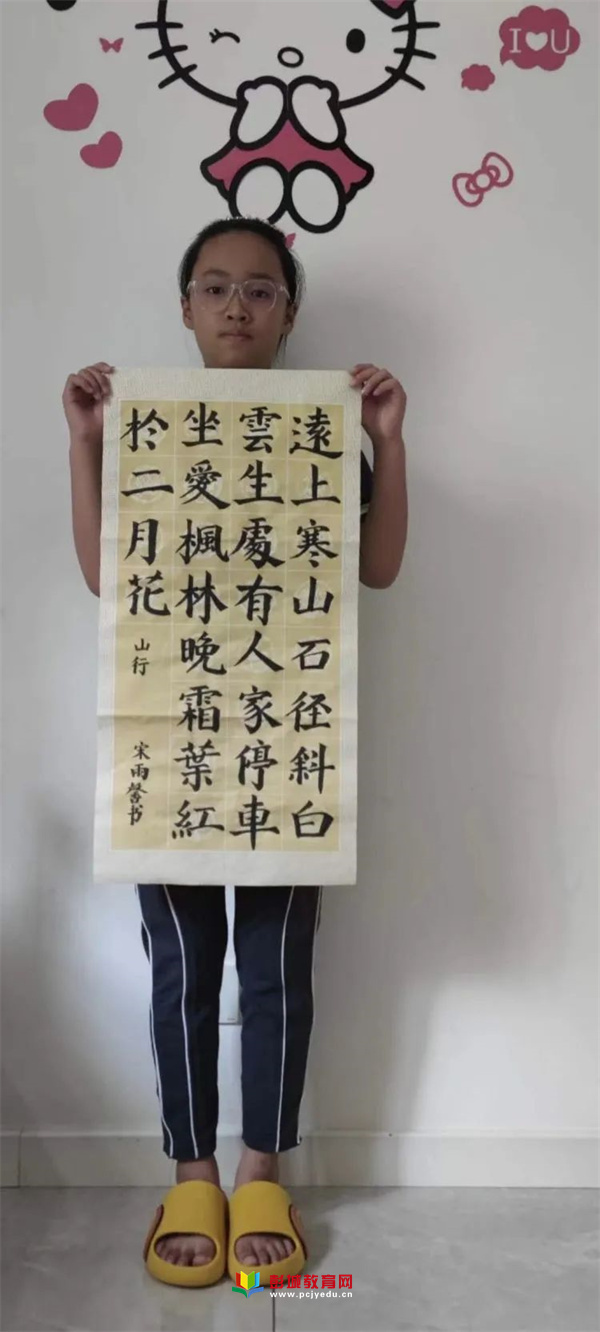 I U
遠上寒山石径斜白
雲生處有人家停車
坐愛楓林晚霜葉紅
於二月花
山行
宋雨馨书
彭城教育网
www.pcjyedu.cn